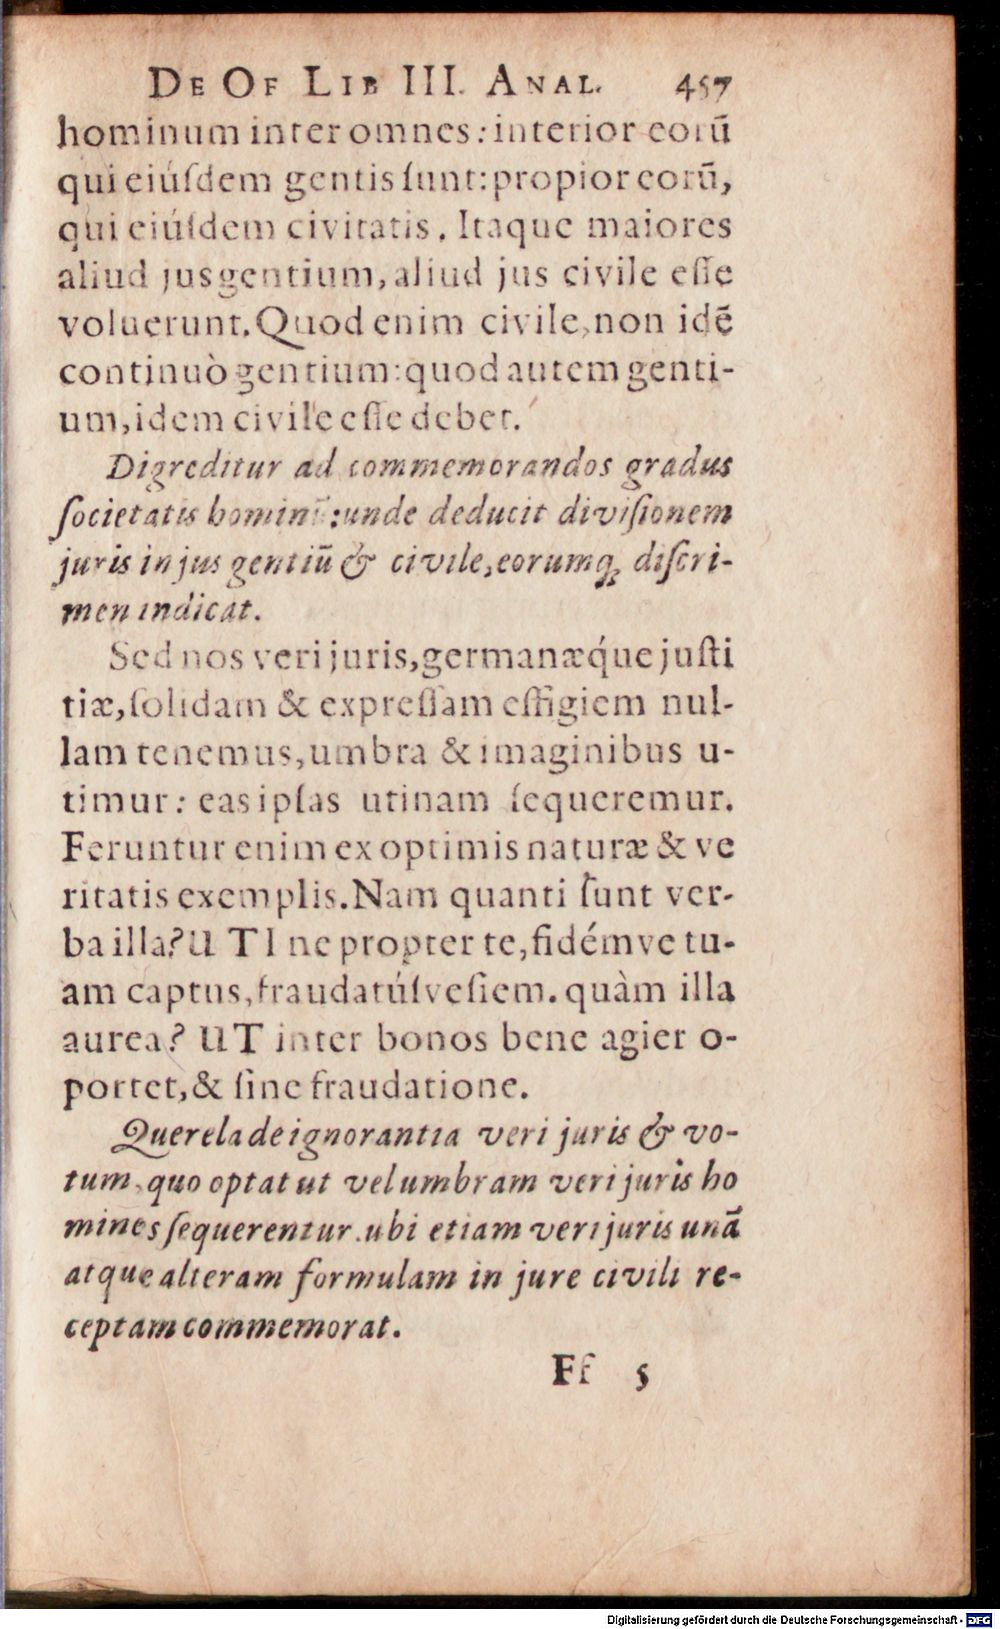 DE OF LIB III. ANAL. 457
hominum inter omnes: interior eorũ
qui eiúſdem gentis ſunt: propior eorũ,
qui eiúſdem civitatis. Itaque maiores
aliud jus gentium, aliud jus civile eſſe
voluerunt. Quod enim civile, non idẽ
continuò gentium: quod autem genti-
um, idem civile eſſe debet.
Digreditur ad commemorandos gradus
ſocietatis hominũ: unde deducit diviſionem
juris in jus gentiũ & civile, eorumq́; diſcri-
men indicat.
Sed nos veri juris, germanæq́ue juſti
tiæ, ſolidam & expreſſam effigiem nul-
lam tenemus, umbra & imaginibus u-
timur: eas ipſas utinam ſequeremur.
Feruntur enim ex optimis naturæ & ve
ritatis exemplis. Nam quanti ſunt ver-
ba illa? UTI ne propter te, fidémve tu-
am captus, fraudatúſve ſiem. quàm illa
aurea? UT inter bonos bene agier o-
portet, & ſine fraudatione.
Querela de ignorantia veri juris & vo-
tum, quo optat ut vel umbram veri juris ho
mines ſequerentur. ubi etiam veri juris unã
atque alteram formulam in jure civili re-
ceptam commemorat.
Ff 5
Digitalisierung gefördert durch die Deutsche Forschungsgemeinschaft - DFG